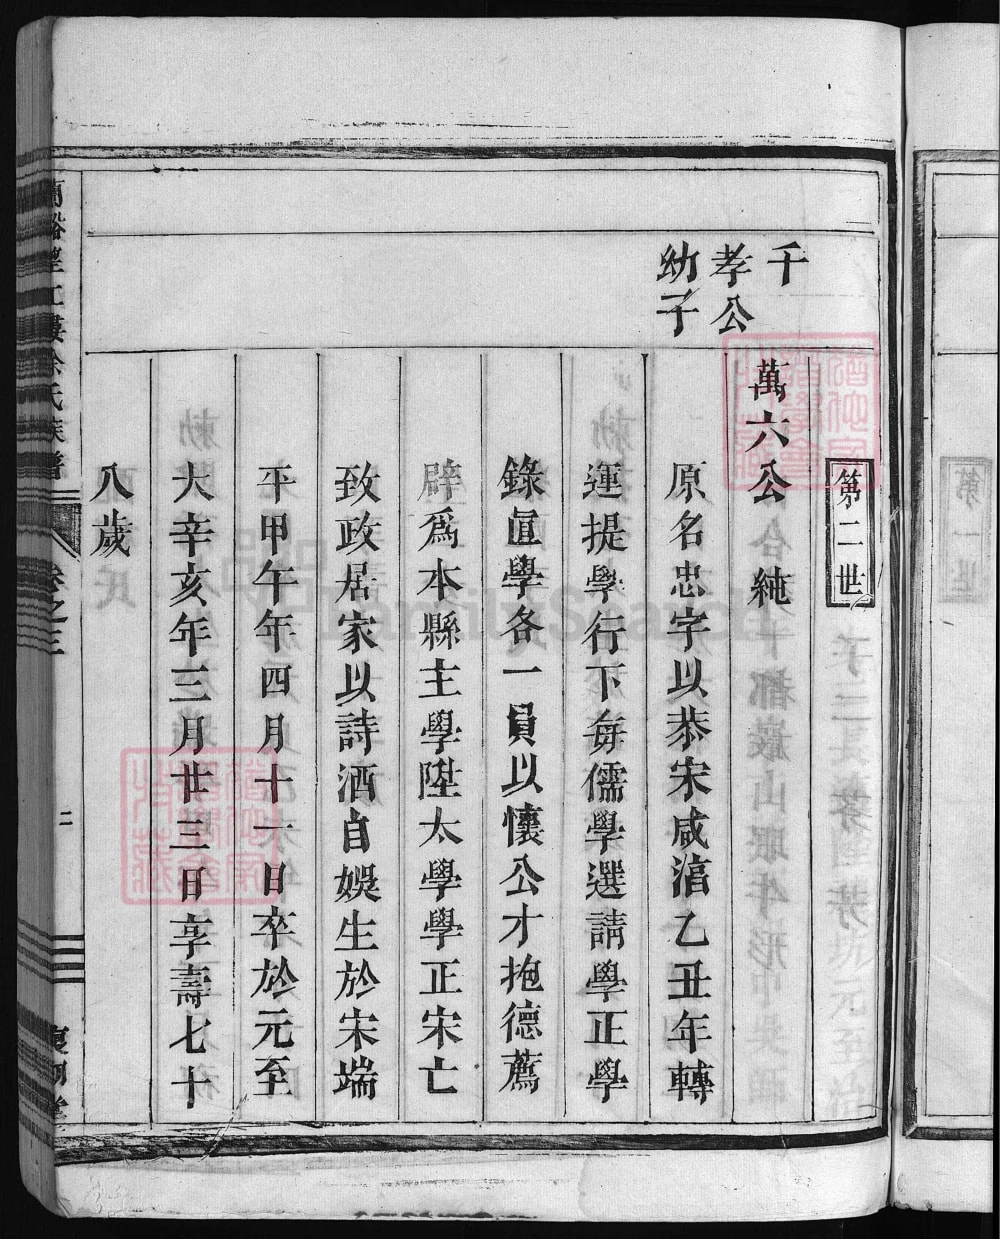 第二世
千
孝公
幼子
萬六公純
原名忠字以恭宋咸淳乙丑年轉
運提學行下每儒學選請學正學
錄直學各一員以懷公才抱德薦
辟爲本縣主學陞太學學正宋亡
致政居家以詩酒自娛生於宋端
平甲午年四月十一日卒於元至
大辛亥年三月廿三日享壽七十
八歲
蘭谿 徐氏族譜
卷之三
二
FamilySearch